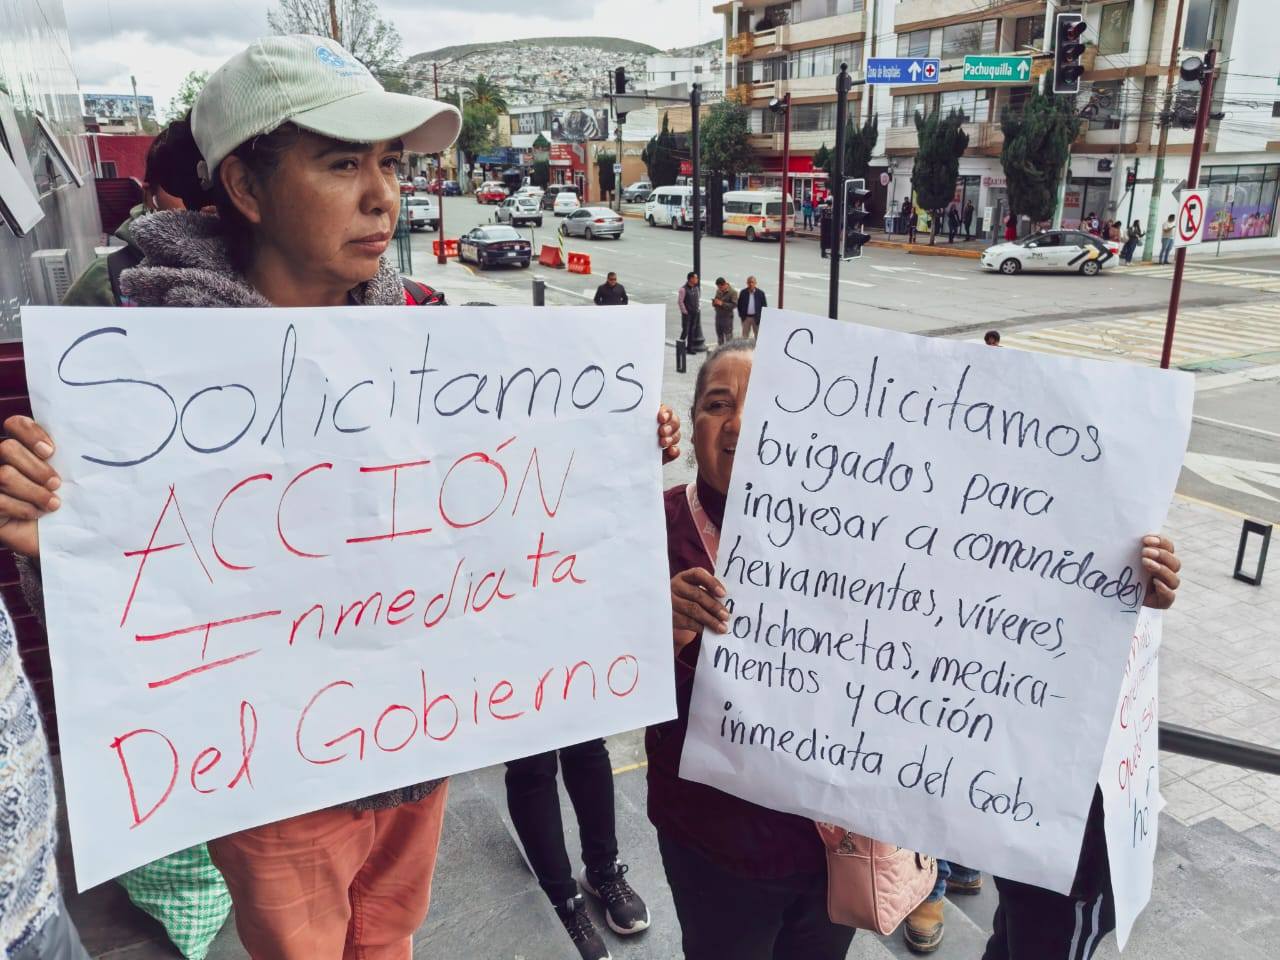 Zona de Hospitales
Pachuquilla
Solicitamos
ACCIÓN
Inmediata
Del Gobierno
Solicitamos
brigadas para
ingresar a comunidades
herramientas, víveres,
Colchonetas, medica-
mentos y acción
inmediata del Gob.